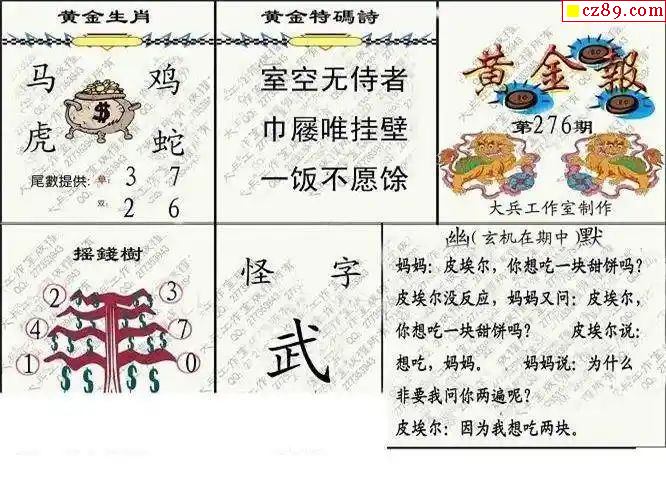 cz89.com
黄金生肖
马 鸡
虎 蛇
尾數提供: 单: 3 7
双: 2 6
黄金特碼詩
室空无侍者
巾屦唯挂壁
一饭不愿馀
黄金報
第276期
大兵工作室制作
摇錢樹
2 3
4 7
1 0
怪字
武
幽(玄机在期中)默
妈妈：皮埃尔，你想吃一块甜饼吗？
皮埃尔没反应，妈妈又问：皮埃尔，
你想吃一块甜饼吗？ 皮埃尔说：
想吃，妈妈。 妈妈说：为什么
非要我问你两遍呢？
皮埃尔：因为我想吃两块。